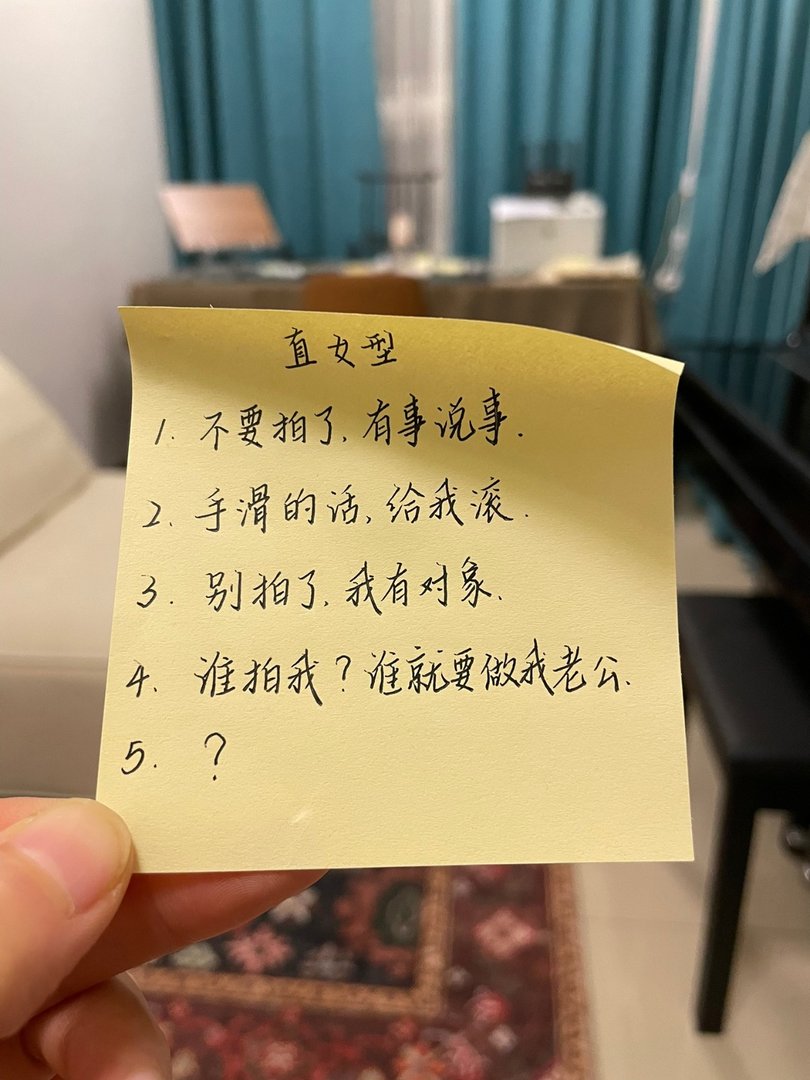 直女型
1. 不要拍了,有事说事.
2. 手滑的话,给我滚.
3. 别拍了,我有对象.
4. 谁拍我?谁就要做我老公.
5. ?